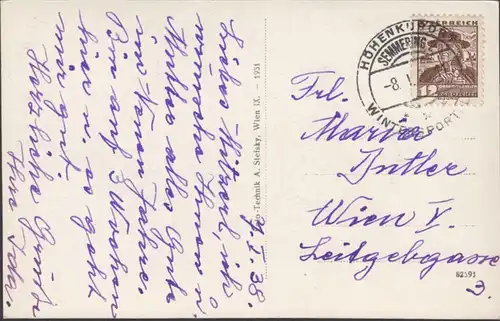 7.I.38.
Liebes Mitzerl, ich
wünsche Ihnen u.
Mutter alles Gute
im Neuen Jahre.
Bin auf 3 Wochen
hier u. es geht
mir gut.
Herzliche Grüße
Ihre
Photo-Technik A. Stefsky, Wien IX. – 1931
HÖHENKURORT
SEMMERING
-8.I
WINTERSPORT
ÖSTERREICH
12
Frl.
Marie
Intler
Wien V.
Leitgebgasse
3.
82593